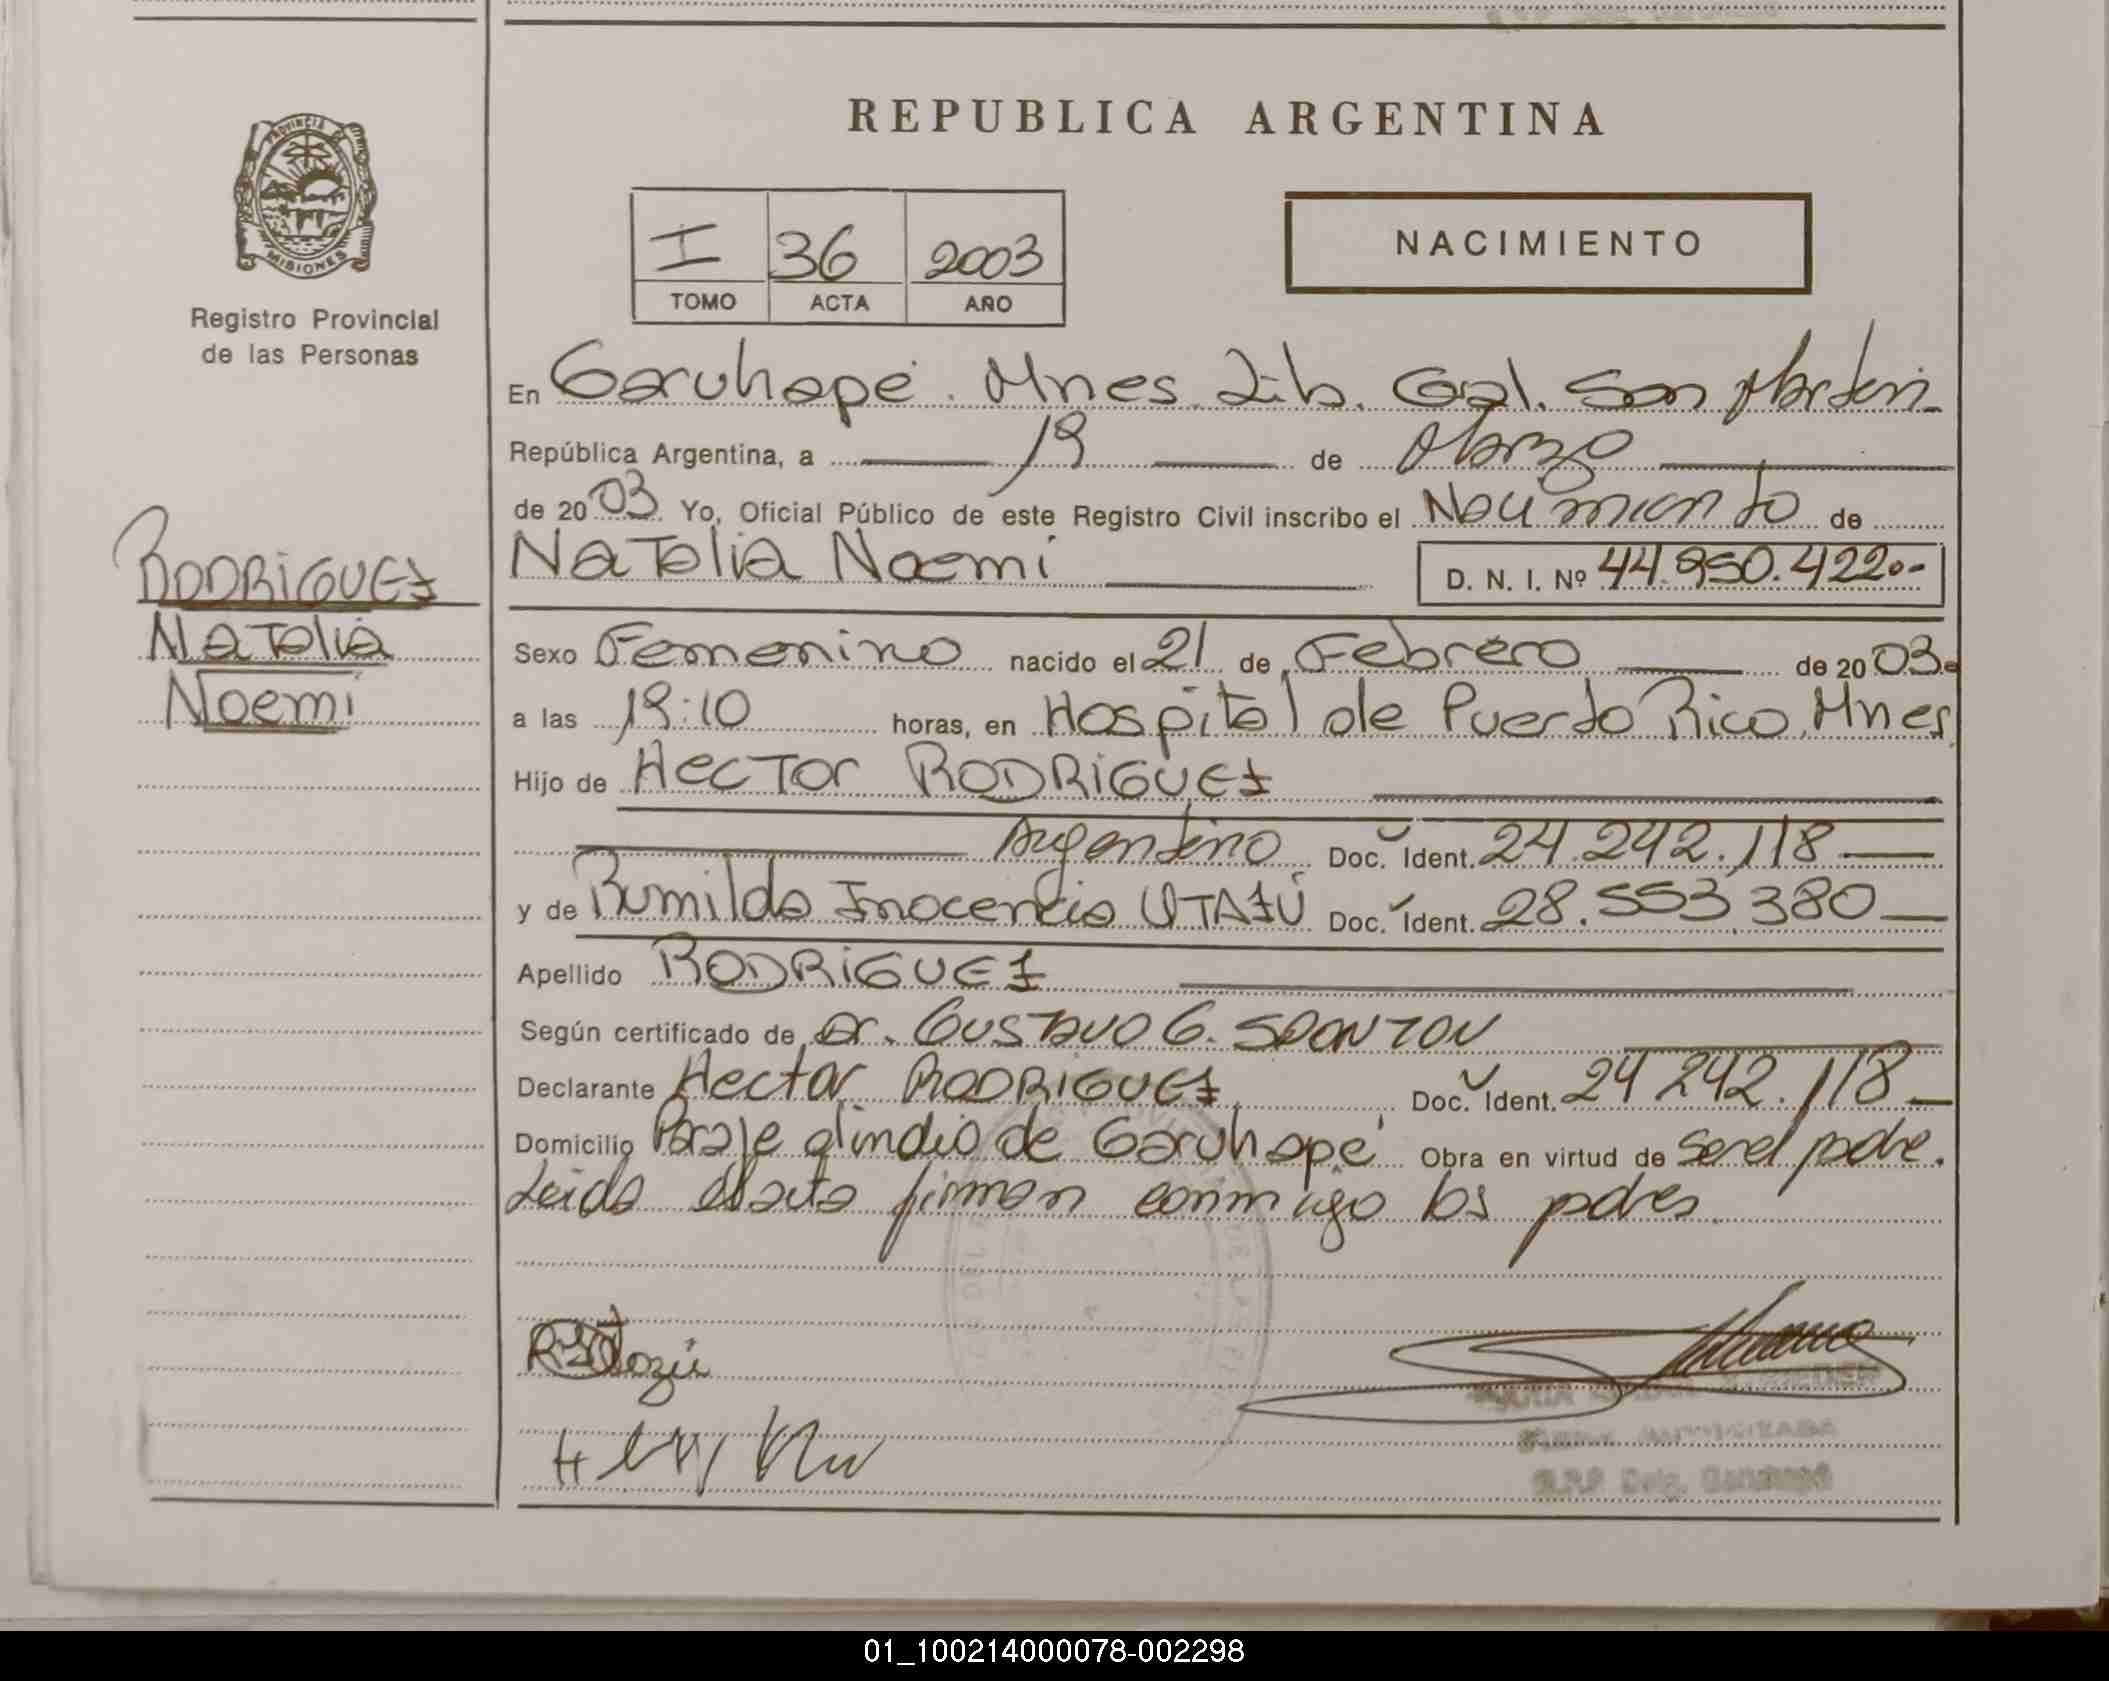 REPUBLICA ARGENTINA
PROVINCIA
MISIONES
Registro Provincial
de las Personas
I 36 2003
TOMO ACTA AÑO
NACIMIENTO
En Garuhapé. Mnes. Lib. Gral. San Martin
República Argentina, a 19 de Marzo
de 2003 Yo, Oficial Público de este Registro Civil inscribo el Nacimiento de
Natalia Noemi D. N. I. Nº 44.950.422.-
RODRIGUEZ
Natalia
Noemi
Sexo Femenino nacido el 21 de Febrero de 2003.
a las 19:10 horas, en Hospital de Puerto Rico, Mnes
Hijo de Hector RODRIGUEZ
Argentino Doc. Ident. 24.242.118
y de Rumilda Inocencia OTAZÚ Doc. Ident. 28.553.380
Apellido RODRIGUEZ
Según certificado de Dr. GUSTAVO G.
Declarante Hector RODRIGUEZ Doc. Ident. 24 242.118
Domicilio Paraje el indio de Garuhapé Obra en virtud de ser el padre.
Leida el acta firman conmigo los padres
01_100214000078-002298